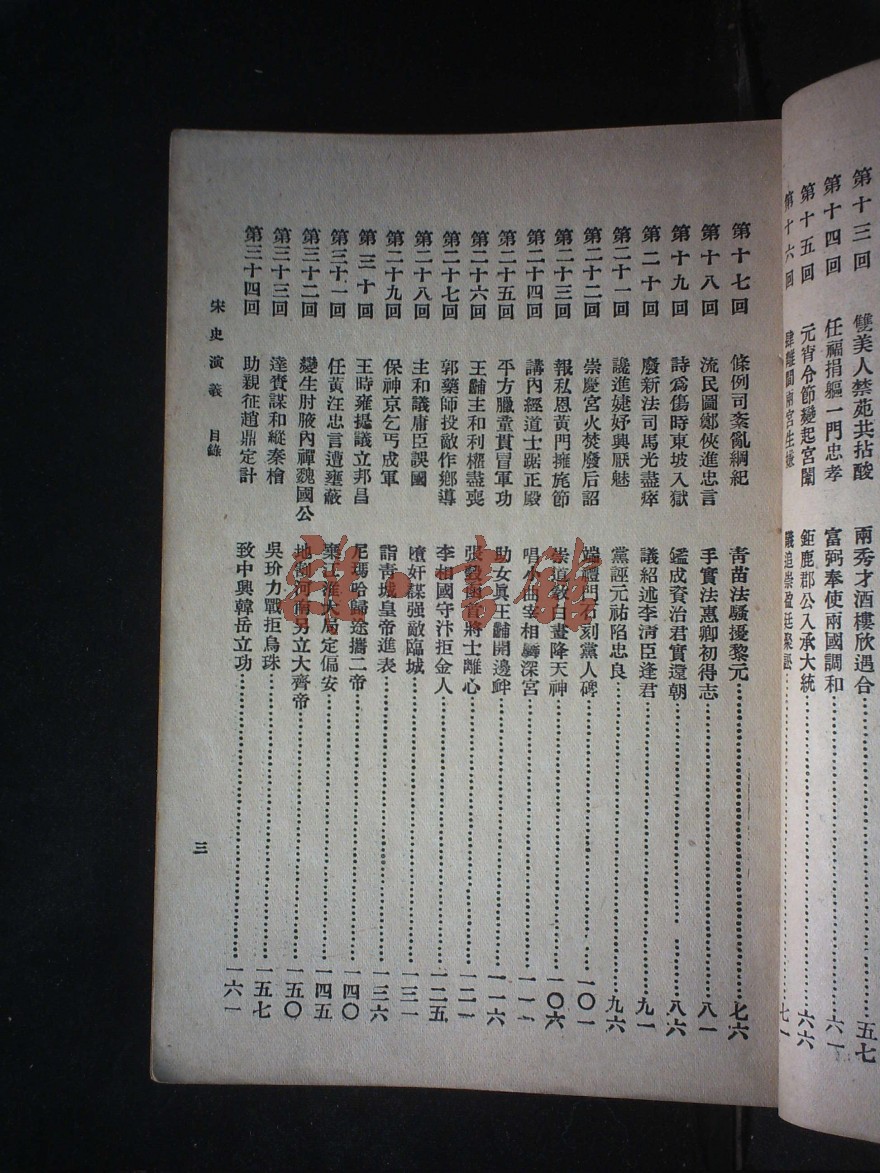 第十三回 雙美人禁苑共拈酸 兩秀才酒樓欣遇合 五七
第十四回 任福捐軀一門忠孝 富弼奉使兩國調和 六一
第十五回 元宵令節變起宮闈 鉅鹿郡公入承大統 六六
第十六回 南宮生嫌 追崇盈廷聚訟 七一
第十七回 條例司紊亂綱紀 青苗法騷擾黎元 七六
第十八回 流民圖鄭俠進忠言 手實法惠卿初得志 八一
第十九回 詩爲傷時東坡入獄 鑑成資治君實還朝 八六
第二十回 廢新法司馬光盡瘁 議紹述李清臣逢君 九一
第二十一回 讒進婕妤興厭魅 黨誣元祐陷忠良 九六
第二十二回 崇慶宮火焚廢后詔 端禮門石刻黨人碑 一〇一
第二十三回 報私恩黃門擁旄節 崇道敎白晝降天神 一〇六
第二十四回 講內經道士踞正殿 唱小曲宰相歸深宮 一一一
第二十五回 平方臘童貫冒軍功 助女眞王黼開邊衅 一一六
第二十六回 王黼主和利權盡喪 張瑴函首將士離心 一二一
第二十七回 郭藥師投敵作鄕導 李相國守汴拒金人 一二五
第二十八回 主和議庸臣誤國 奸謀强敵臨城 一三一
第二十九回 保神京乞丐成軍 詣靑城皇帝進表 一三六
第三十回 王時雍提議立邦昌 尼瑪哈歸途擄二帝 一四〇
第三十一回 任黃汪忠言遭壅蔽 棄江淮大局定偏安 一四五
第三十二回 變生肘腋內禪魏國公 地割河南另立大齊帝 一五〇
第三十三回 達賚謀和縱秦檜 吳玠力戰拒烏珠 一五七
第三十四回 助親征趙鼎定計 致中興韓岳立功 一六一
宋史演義 目錄 三